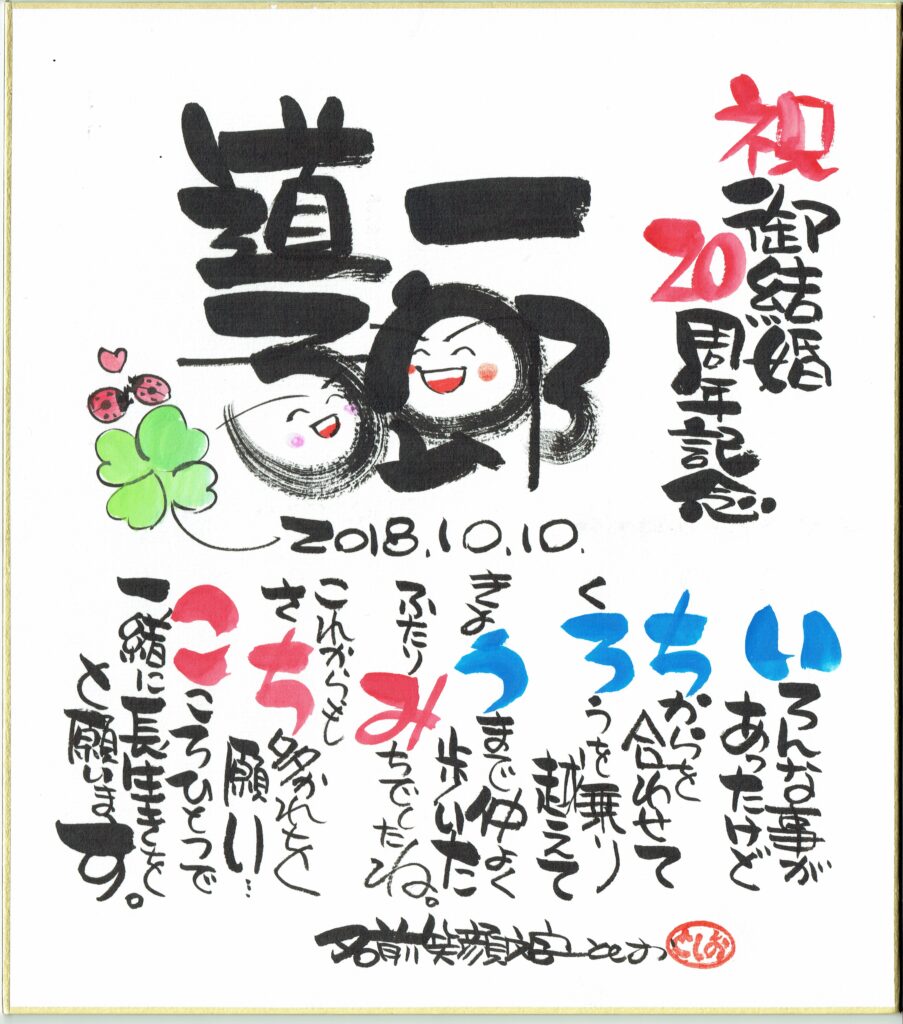 祝御結婚
20周年記念
一郎
道子
2018.10.10.
いろんな事が
あったけど
ちからを
合わせて
くろうを乗り
越えて
きょうまで仲よく
歩いた
ふたりみちでしたね。
これからも
さち多かれと
願い…
こころひとつで
一緒に長生きを
と願います。
名前笑顔 としお
としお